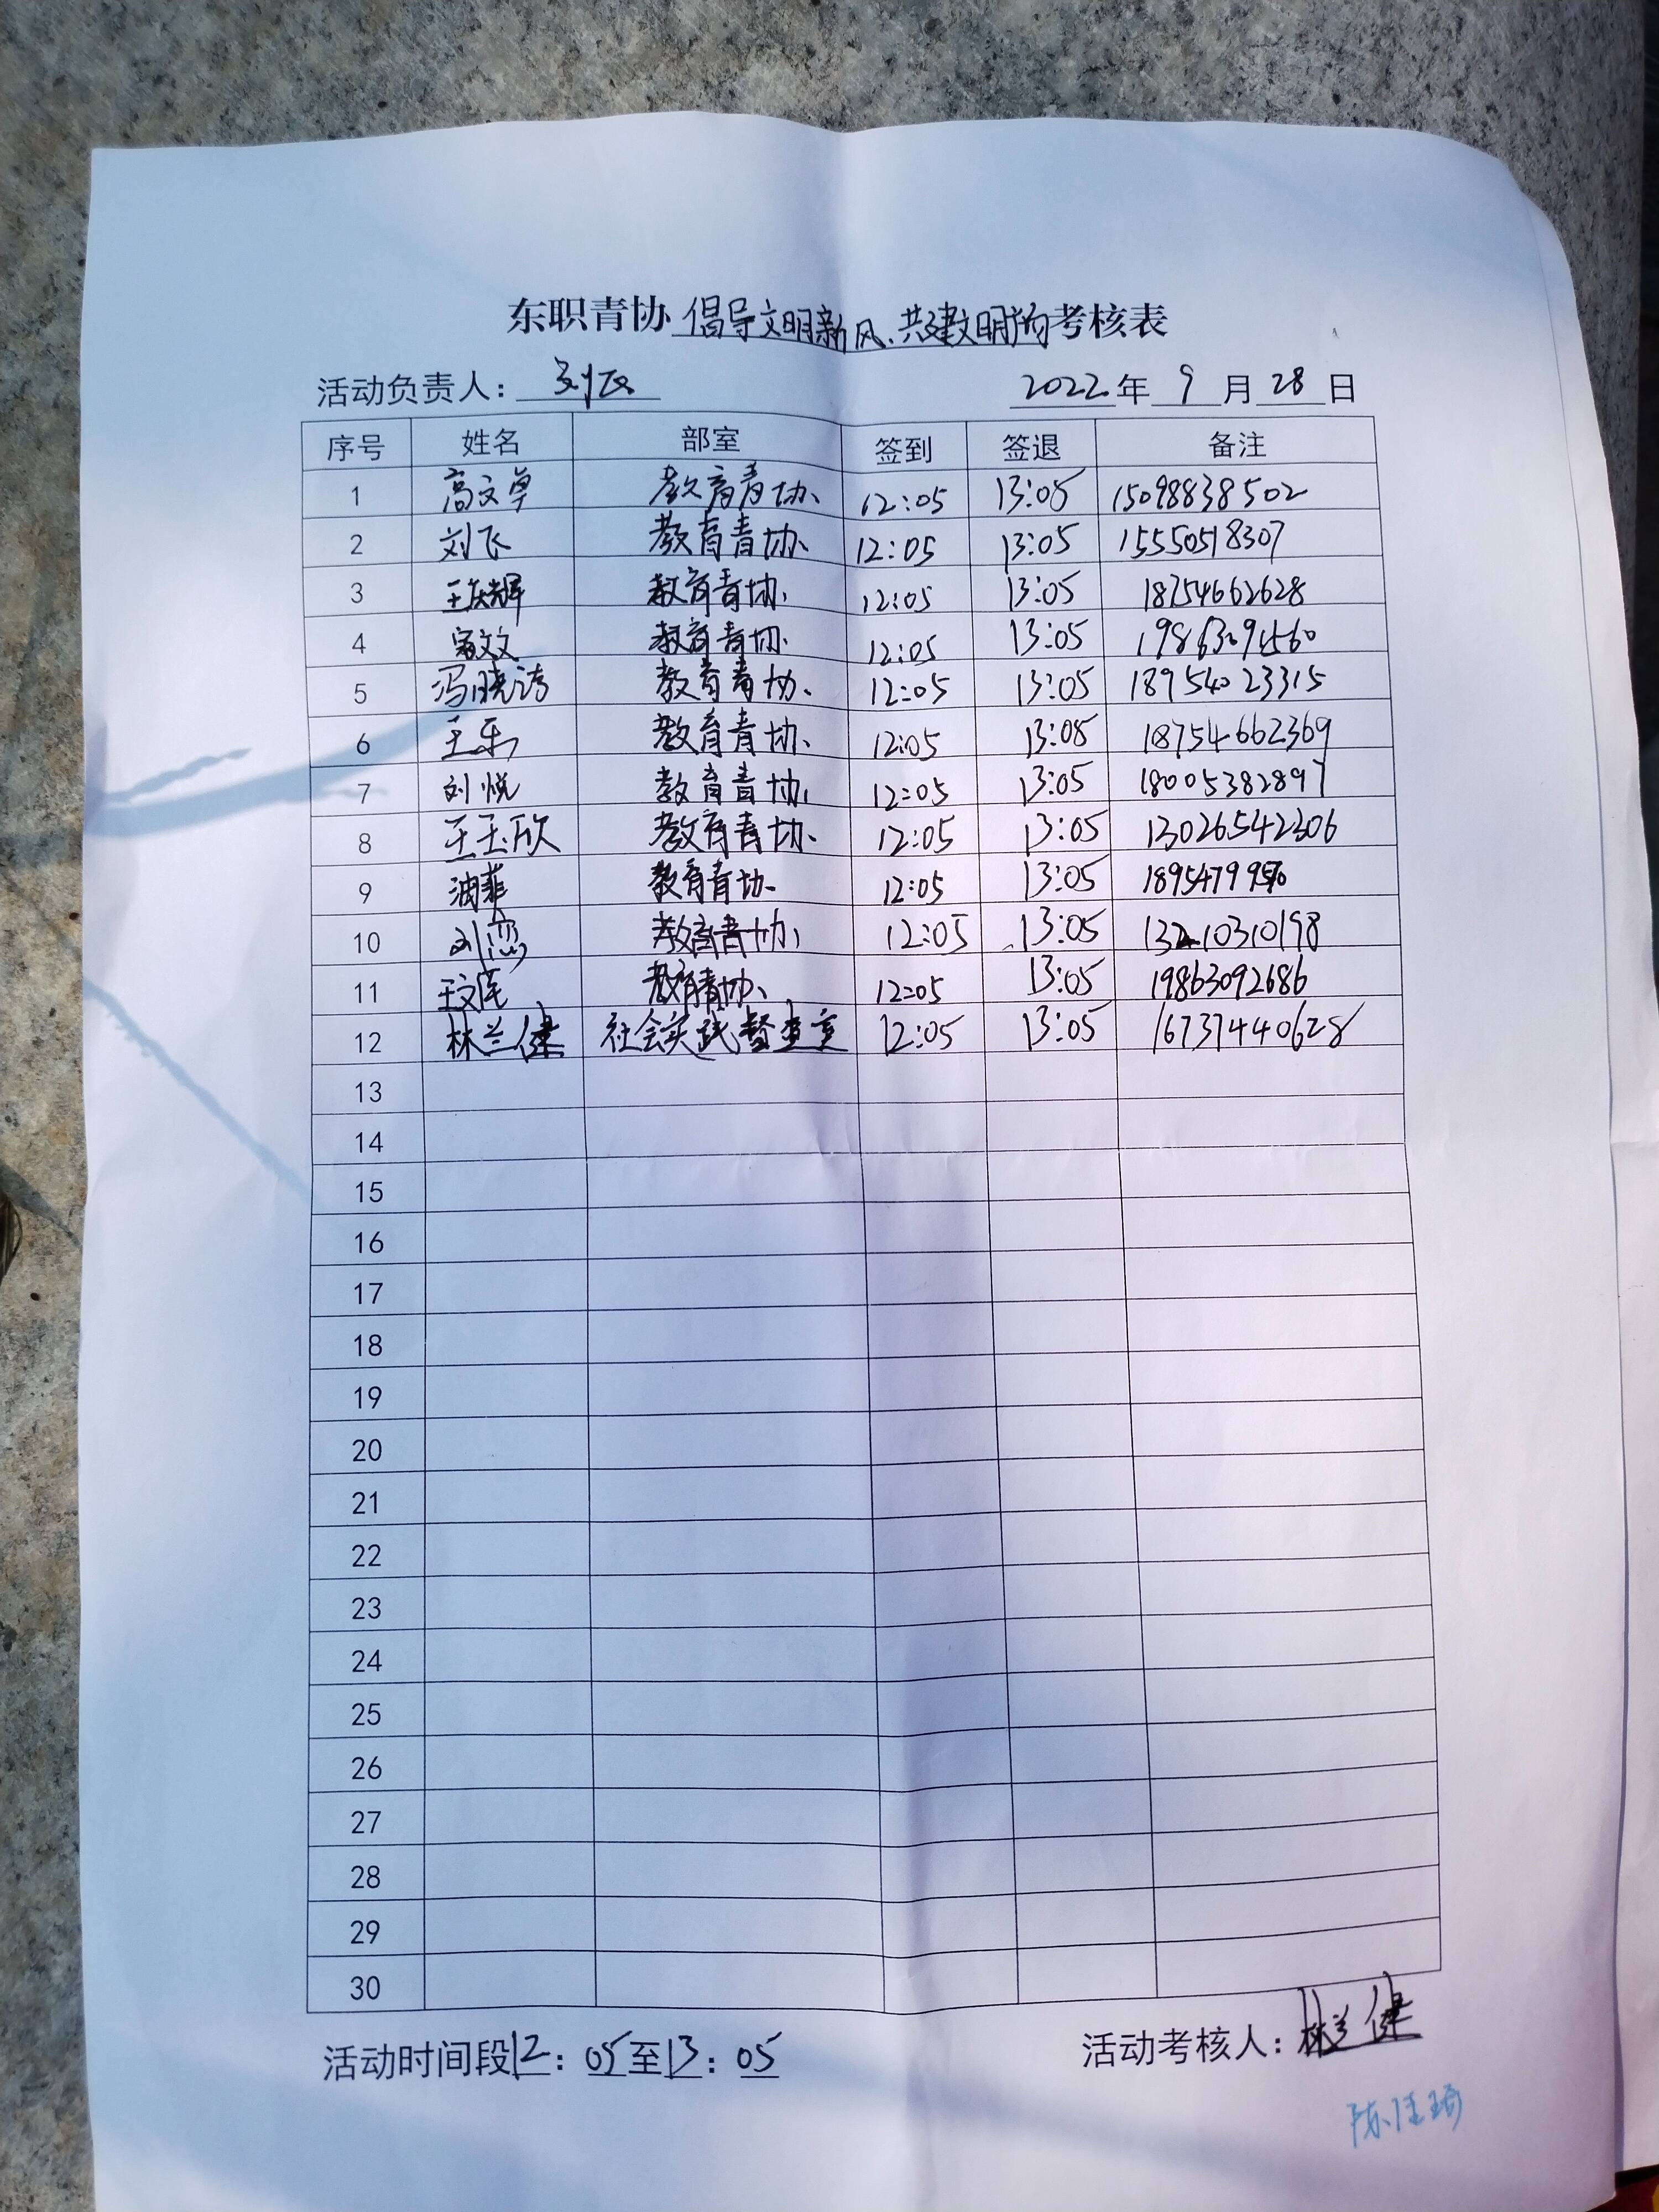 东职青协 倡导文明新风、共建文明 考核表
活动负责人： 2022年 9 月 28 日
序号 姓名 部室 签到 签退 备注
1 高文卓 教育青协 12:05 13:05 15098838502
2 刘飞 教育青协 12:05 13:05 15550518307
3 王庆辉 教育青协 12:05 13:05 18754662628
4 文文 教育青协 12:05 13:05 19863094560
5 冯晓涛 教育青协 12:05 13:05 18954023315
6 王乐 教育青协 12:05 13:05 18754662369
7 刘悦 教育青协 12:05 13:05 18005382897
8 王玉欣 教育青协 12:05 13:05 13026542306
9 教育青协 12:05 13:05
10 刘恋 教育青协 12:05 13:05 13210310198
11 教育青协 12:05 13:05 19863092686
12 林兰健 社会实践督查室 12:05 13:05 16737440628
13
14
15
16
17
18
19
20
21
22
23
24
25
26
27
28
29
30
活动时间段12：05至13：05 活动考核人：林兰健
陈佳琦